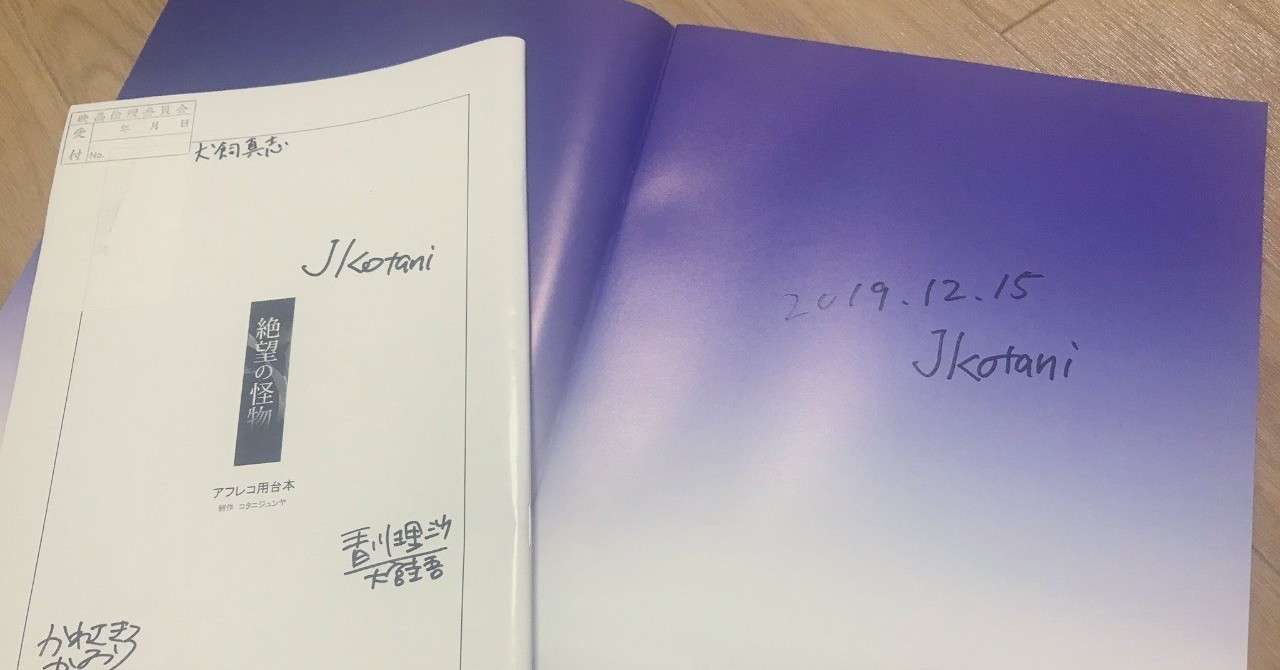 映画倫理委員会
受付
年 月 日
No.
犬飼真志
JKotani
絶望の怪物
アフレコ用台本
制作 コタニジュンヤ
香川理沙
かねさき
かおり
2019.12.15
JKotani